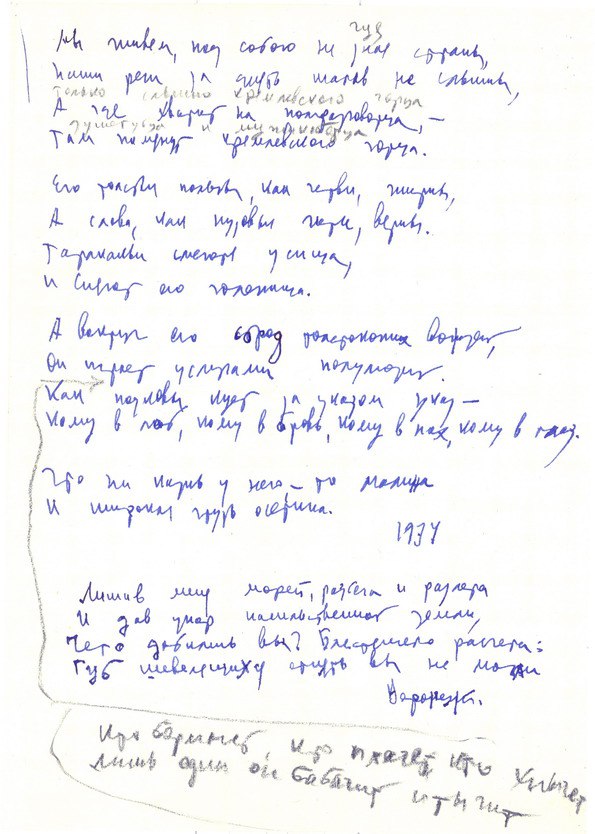 чуя
Мы живем, под собою не зная страны,
Наши речи за пять шагов не слышны,
только слышно кремлевского горца
А где хватит на полразговорца, –
душегубца и мужикоборца
Там помянут кремлевского горца.
Его толстые пальцы, как черви, жирны,
А слова, как пудовые гири, верны.
Тараканьи смеются усища,
И сияют его голенища.
А вокруг его сброд толстокожих вождей,
Он играет услугами полулюдей.
Как подковы кует за указом указ –
Кому в лоб, кому в бровь, кому в пах, кому в глаз.
Что ни казнь у него – то малина
И широкая грудь осетина.
1934
Лишив меня морей, разбега и разлета
И дав упор насильственной земли,
Чего добились вы? Блестящего расчета:
Губ шевелящихся отнять вы не могли
Воронеж.
Кто плачет, кто хнычет
Лишь один он бабачит и тычит